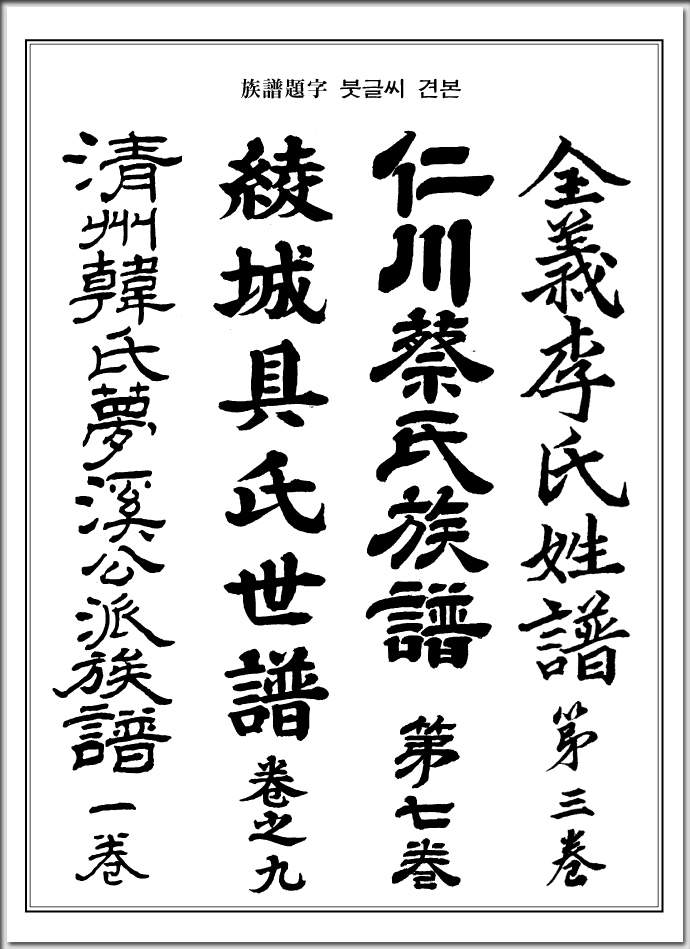 族譜題字 붓글씨 견본
全義李氏姓譜 第三卷
仁川蔡氏族譜 第七卷
綾城具氏世譜 卷之九
清州韓氏夢溪公派族譜 一卷